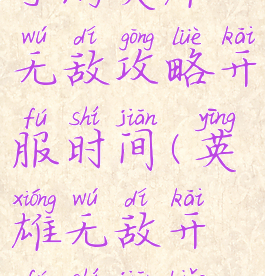 wú dí gōng lüè kāi
无敌攻略开
fú shí jiān yīng
服时间(英
xióng wú dí kāi
雄无敌开